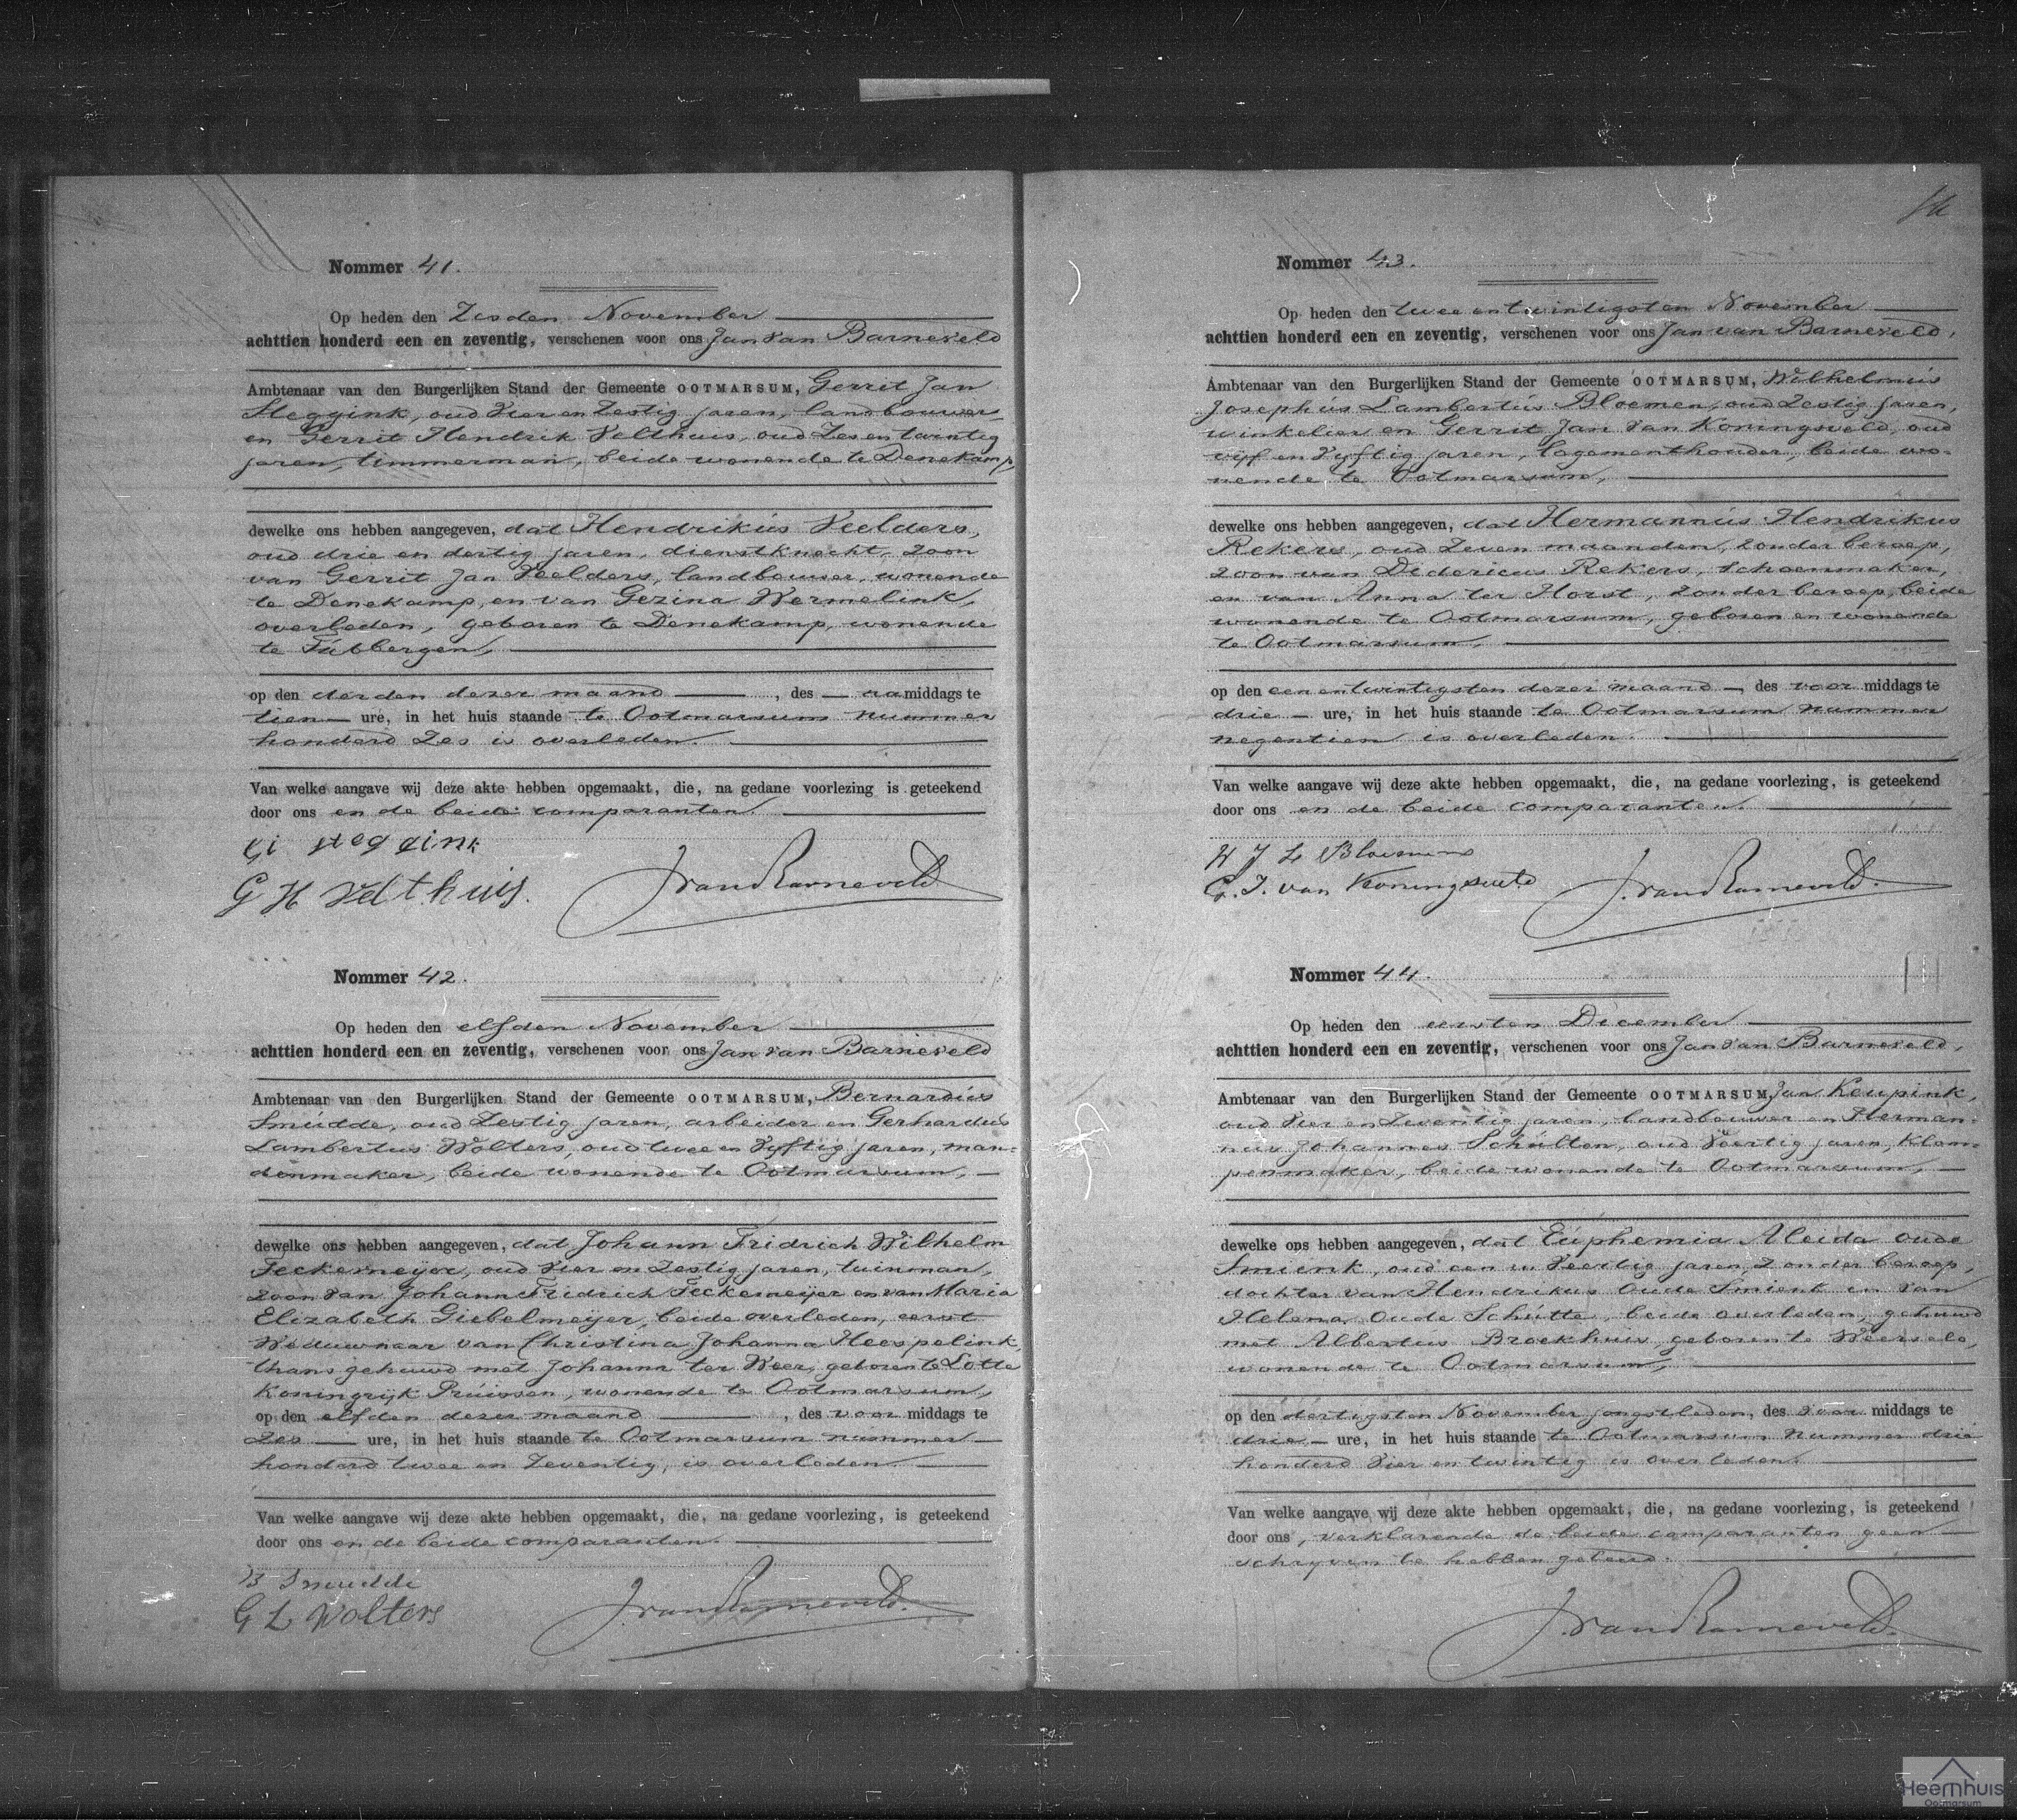 Nommer 41.
Op heden den Zesden November
achttien honderd een en zeventig, verschenen voor ons Jan van Barneveld
Ambtenaar van den Burgerlijken Stand der Gemeente OOTMARSUM, Gerrit Jan
Steggink, oud vier en Zestig jaren, landbouwer
en Gerrit Hendrik Velthuis, oud Zes en twintig
jaren, timmerman, beide wonende te Denekamp
dewelke ons hebben aangegeven, dat Hendrikus Veelders,
oud drie en dertig jaren, dienstknecht, zoon
van Gerrit Jan Veelders, landbouwer, wonende
te Denekamp, en van Gezina Wermelink,
overleden, geboren te Denekamp, wonende
te Tubbergen,
op den derden dezer maand, des namiddags te
tien ure, in het huis staande te Ootmarsum nummer
honderd Zes is overleden.
Van welke aangave wij deze akte hebben opgemaakt, die, na gedane voorlezing is geteekend
door ons en de beide comparanten.
Gj steggink
G H Velthuis.
J. van Barneveld
Nommer 42.
Op heden den elfden November
achttien honderd een en zeventig, verschenen voor ons Jan van Barneveld
Ambtenaar van den Burgerlijken Stand der Gemeente OOTMARSUM, Bernardus
Smudde, oud Zestig jaren, arbeider en Gerhardus
Lambertus Wolters, oud twee en Vyftig jaren, man-
denmaker, beide wonende te Ootmarsum,
dewelke ons hebben aangegeven, dat Johann Fridrich Wilhelm
Feckemeijer, oud vier en Zestig jaren, tuinman,
zoon van Johann Fridrich Feckemeijer en van Maria
Elizabeth Giebelmeijer, beide overleden, eerst
Weduwnaar van Christina Johanna Heespelink,
thans gehuwd met Johanna ter Weer, geboren te Lotte
Koningrijk Pruissen, wonende te Ootmarsum,
op den elfden dezer maand, des voormiddags te
Zes ure, in het huis staande te Ootmarsum nummer
honderd twee en Zeventig, is overleden.
Van welke aangave wij deze akte hebben opgemaakt, die, na gedane voorlezing, is geteekend
door ons en de beide comparanten.
B Smudde
G L Wolters
J. van Barneveld.
Nommer 43.
Op heden den twee entwintigsten November
achttien honderd een en zeventig, verschenen voor ons Jan van Barneveld,
Ambtenaar van den Burgerlijken Stand der Gemeente OOTMARSUM, Wilhelmus
Josephus Lambertus Bloemen, oud Zestig jaren,
winkelier en Gerrit Jan van Koningsveld, oud
vijf en Vyftig jaren, logementhouder, beide wo-
nende te Ootmarsum,
dewelke ons hebben aangegeven, dat Hermannus Hendrikus
Rekers, oud Zeven maanden, zonder beroep,
zoon van Didericus Rekers, schoenmaker,
en van Anna ter Horst, zonder beroep, beide
wonende te Ootmarsum, geboren en wonende
te Ootmarsum,
op den een entwintigsten dezer maand, des voormiddags te
drie ure, in het huis staande te Ootmarsum nummer
negentien is overleden.
Van welke aangave wij deze akte hebben opgemaakt, die, na gedane voorlezing, is geteekend
door ons en de beide comparanten.
W J L Bloemen
G. J. van Koningsveld
J. van Barneveld.
Nommer 44.
Op heden den eersten December
achttien honderd een en zeventig, verschenen voor ons Jan van Barneveld,
Ambtenaar van den Burgerlijken Stand der Gemeente OOTMARSUM, Jan Keupink,
oud Vier en Zeventig jaren, landbouwer en Herman-
nus Johannes Schulten, oud Veertig jaren, klom-
penmaker, beide wonende te Ootmarsum,
dewelke ons hebben aangegeven, dat Euphemia Aleida oude
Smienk, oud een en Veertig jaren, zonder beroep,
dochter van Hendrikus Oude Smienk en van
Helena Oude Schutte, beide overleden, gehuwd
met Albertus Broekhuis, geboren te Weerselo,
wonende te Ootmarsum,
op den dertigsten November jongstleden, des voormiddags te
drie ure, in het huis staande te Ootmarsum nummer drie
honderd Vier en twintig is overleden.
Van welke aangave wij deze akte hebben opgemaakt, die, na gedane voorlezing, is geteekend
door ons, verklarende de beide comparanten geen
schryven te hebben geleerd.
J. van Barneveld.
Heemhuis
Ootmarsum